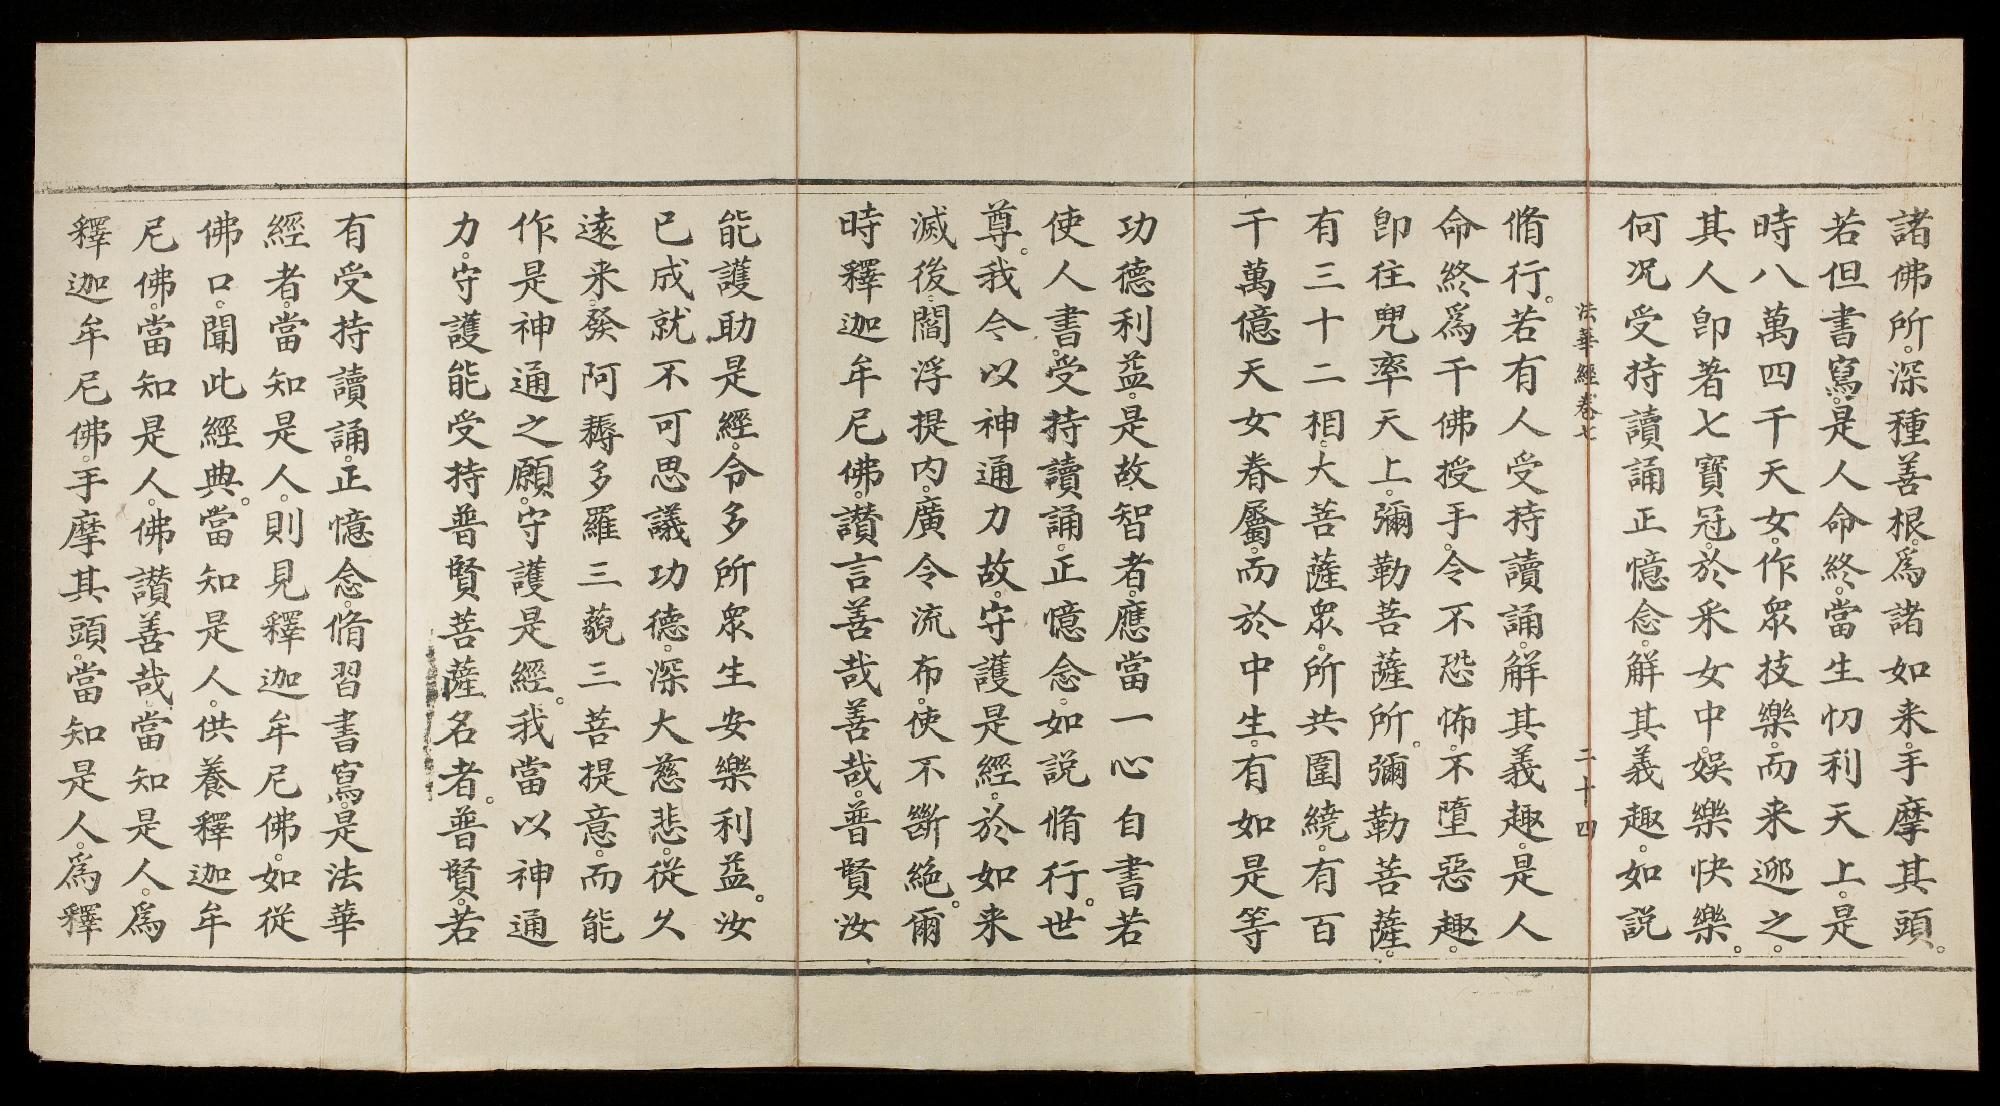 諸佛所。深種善根。爲諸如来。手摩其頭。
若但書寫。是人命終。當生忉利天上。是
時八萬四千天女。作眾技樂。而来迎之。
其人卽著七寶冠。於采女中。娛樂快樂。
何况受持讀誦正憶念。解其義趣。如説
法華經卷七 二十四
脩行。若有人受持讀誦。解其義趣。是人
命終。爲千佛授手。令不恐怖。不墮惡趣。
卽往兜率天上。彌勒菩薩所。彌勒菩薩。
有三十二相。大菩薩眾。所共圍繞。有百
千萬億天女眷屬。而於中生。有如是等
功德利益。是故智者。應當一心自書若
使人書。受持讀誦。正憶念。如説脩行。世
尊。我今以神通力故。守護是經。於如来
滅後。閻浮提内。廣令流布。使不斷絶。爾
時釋迦牟尼佛。讃言善哉善哉。普賢汝
能護助是經。令多所眾生安樂利益。汝
已成就不可思議功德。深大慈悲。從久
遠来。發阿耨多羅三藐三菩提意。而能
作是神通之願。守護是經。我當以神通
力。守護能受持普賢菩薩名者。普賢。若
有受持讀誦。正憶念。脩習書寫。是法華
經者。當知是人。則見釋迦牟尼佛。如從
佛口。聞此經典。當知是人。供養釋迦牟
尼佛。當知是人。佛讃善哉。當知是人。爲
釋迦牟尼佛。手摩其頭。當知是人。爲釋